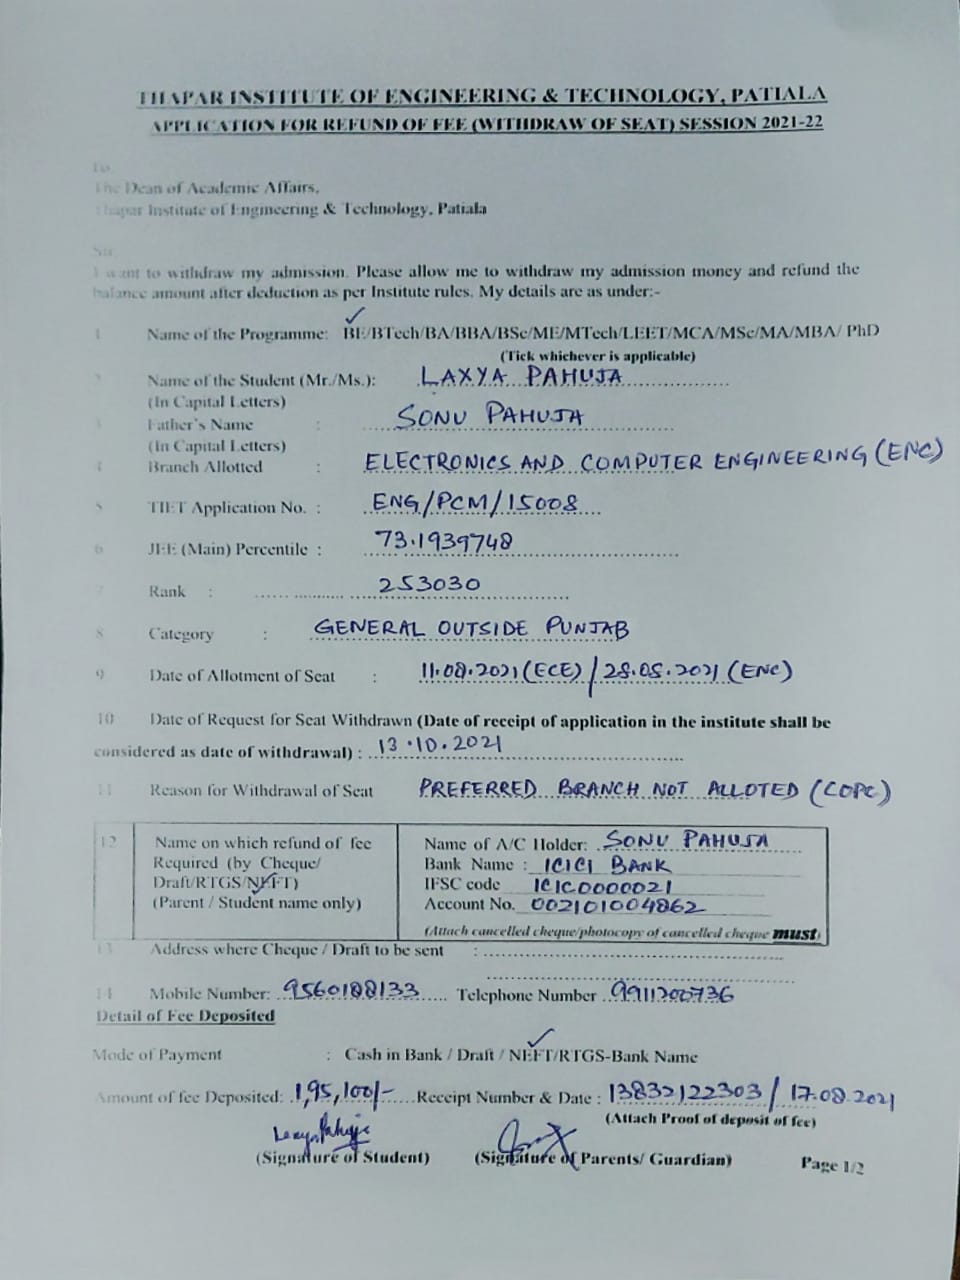 THAPAR INSTITUTE OF ENGINEERING & TECHNOLOGY, PATIALA
APPLICATION FOR REFUND OF FEE (WITHDRAW OF SEAT) SESSION 2021-22
To,
The Dean of Academic Affairs,
Thapar Institute of Engineering & Technology, Patiala
Sir
I want to withdraw my admission. Please allow me to withdraw my admission money and refund the
balance amount after deduction as per Institute rules. My details are as under:-
1 Name of the Programme: BE/BTech/BA/BBA/BSc/ME/MTech/LEET/MCA/MSc/MA/MBA/ PhD
(Tick whichever is applicable)
2 Name of the Student (Mr./Ms.): LAXYA PAHUJA
(In Capital Letters)
3 Father's Name : SONU PAHUJA
(In Capital Letters)
4 Branch Allotted : ELECTRONICS AND COMPUTER ENGINEERING (ENC)
5 TIET Application No. : ENG/PCM/15008
6 JEE (Main) Percentile : 73.1939748
7 Rank : 253030
8 Category : GENERAL OUTSIDE PUNJAB
9 Date of Allotment of Seat : 11.08.2021 (ECE) / 28.08.2021 (ENC)
10 Date of Request for Seat Withdrawn (Date of receipt of application in the institute shall be
considered as date of withdrawal) : 13.10.2021
11 Reason for Withdrawal of Seat PREFERRED BRANCH NOT ALLOTED (COPC)
12 Name on which refund of fee
Required (by Cheque/
Draft/RTGS/NEFT)
(Parent / Student name only)
Name of A/C Holder: SONU PAHUJA
Bank Name : ICICI BANK
IFSC code ICIC0000021
Account No. 002101004862
(Attach cancelled cheque/photocopy of cancelled cheque must)
13 Address where Cheque / Draft to be sent :
14 Mobile Number: 9560188133 Telephone Number 9911200736
Detail of Fee Deposited
Mode of Payment : Cash in Bank / Draft / NEFT/RTGS-Bank Name
Amount of fee Deposited: 1,95,100/- Receipt Number & Date : 13832122303 / 17.08.2021
(Attach Proof of deposit of fee)
Laxya Pahuja
(Signature of Student) (Signature of Parents/ Guardian) Page 1/2